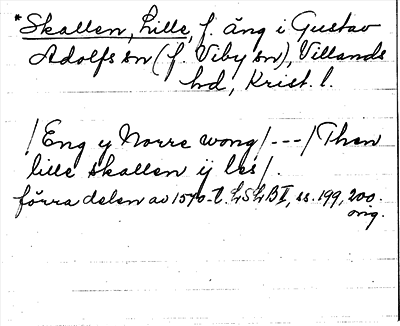 *Skallen, Lille, f. äng i Gustav
Adolfs sn (f. Viby sn), Villands
hd, Krist. l.
/Eng y Norre wong/---/Then
lille skallen ij les/.
förra delen av 1570-t. LSLB II, ss. 199, 200.
orig.